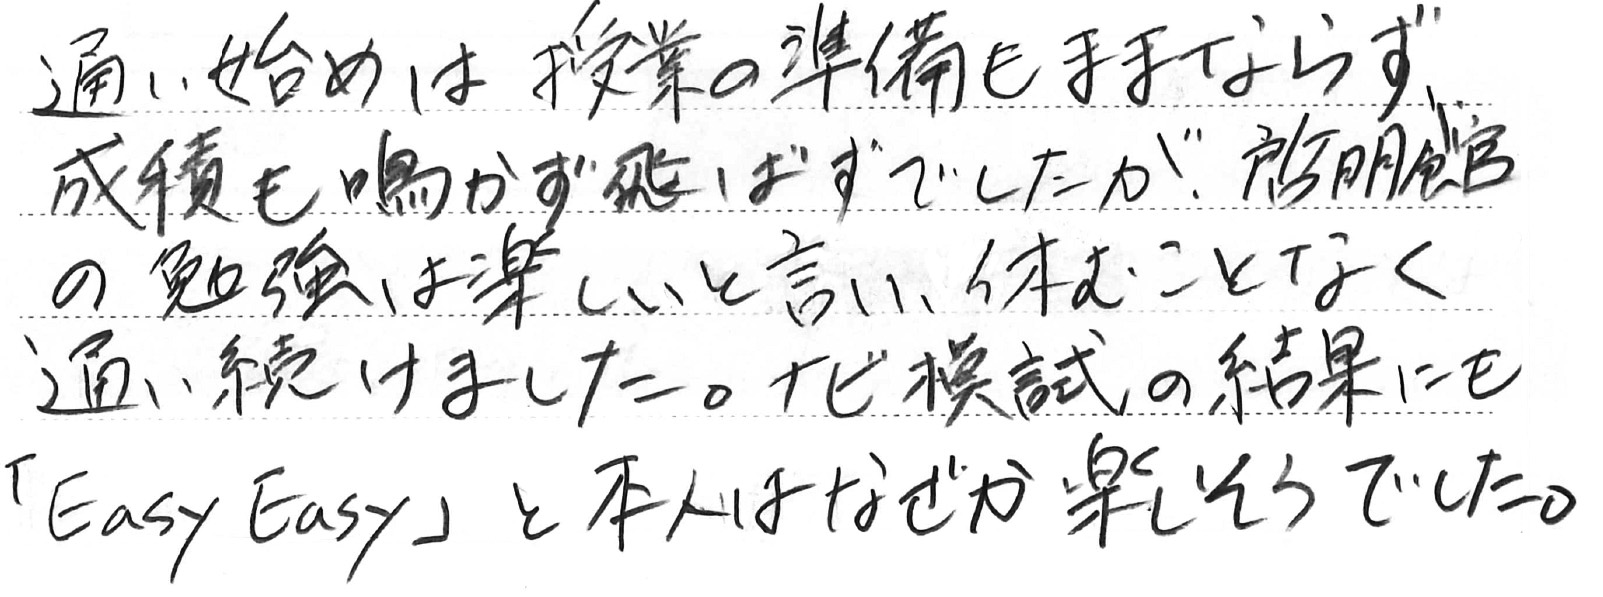 通い始めは授業の準備もままならず、
成積も鳴かず飛ばずでしたが、啓明館
の勉強は楽しいと言い、休むことなく
通い続けました。ナビ模試の結果にも
「Easy Easy」と本人はなぜか楽しそうでした。